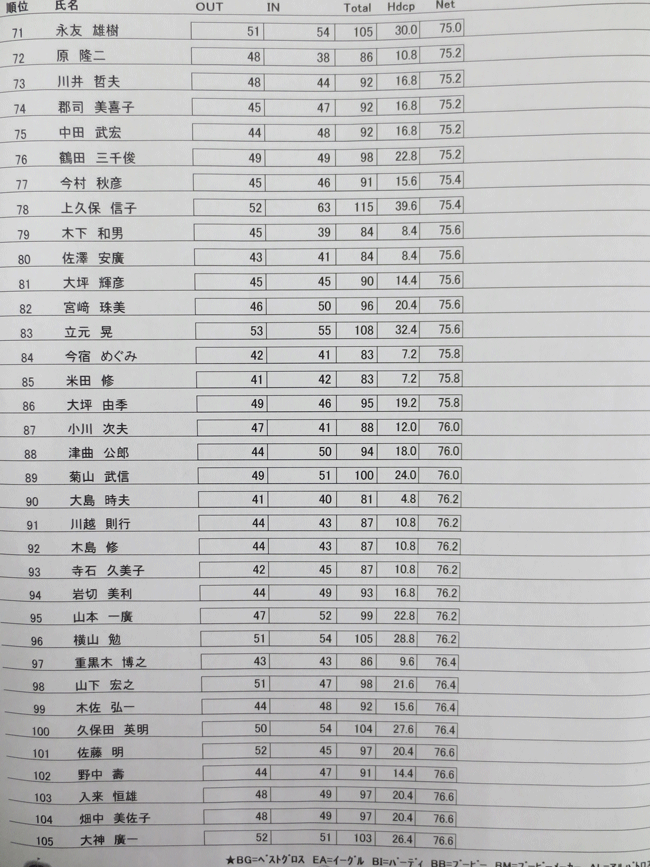 順位 氏名 OUT IN Total Hdcp Net
71 永友 雄樹 51 54 105 30.0 75.0
72 原 隆二 48 38 86 10.8 75.2
73 川井 哲夫 48 44 92 16.8 75.2
74 郡司 美喜子 45 47 92 16.8 75.2
75 中田 武宏 44 48 92 16.8 75.2
76 鶴田 三千俊 49 49 98 22.8 75.2
77 今村 秋彦 45 46 91 15.6 75.4
78 上久保 信子 52 63 115 39.6 75.4
79 木下 和男 45 39 84 8.4 75.6
80 佐澤 安廣 43 41 84 8.4 75.6
81 大坪 輝彦 45 45 90 14.4 75.6
82 宮﨑 珠美 46 50 96 20.4 75.6
83 立元 晃 53 55 108 32.4 75.6
84 今宿 めぐみ 42 41 83 7.2 75.8
85 米田 修 41 42 83 7.2 75.8
86 大坪 由季 49 46 95 19.2 75.8
87 小川 次夫 47 41 88 12.0 76.0
88 津曲 公郎 44 50 94 18.0 76.0
89 菊山 武信 49 51 100 24.0 76.0
90 大島 時夫 41 40 81 4.8 76.2
91 川越 則行 44 43 87 10.8 76.2
92 木島 修 44 43 87 10.8 76.2
93 寺石 久美子 42 45 87 10.8 76.2
94 岩切 美利 44 49 93 16.8 76.2
95 山本 一廣 47 52 99 22.8 76.2
96 横山 勉 51 54 105 28.8 76.2
97 重黒木 博之 43 43 86 9.6 76.4
98 山下 宏之 51 47 98 21.6 76.4
99 木佐 弘一 44 48 92 15.6 76.4
100 久保田 英明 50 54 104 27.6 76.4
101 佐藤 明 52 45 97 20.4 76.6
102 野中 壽 44 47 91 14.4 76.6
103 入来 恒雄 48 49 97 20.4 76.6
104 畑中 美佐子 48 49 97 20.4 76.6
105 大神 廣一 52 51 103 26.4 76.6
★BG=ﾍﾞｽﾄｸﾞﾛｽ EA=ｲｰｸﾞﾙ BI=ﾊﾞｰﾃﾞｨ BB=ﾌﾞｰﾋﾞｰ BM=ﾌﾞｰﾋﾞｰﾒｰｶｰ